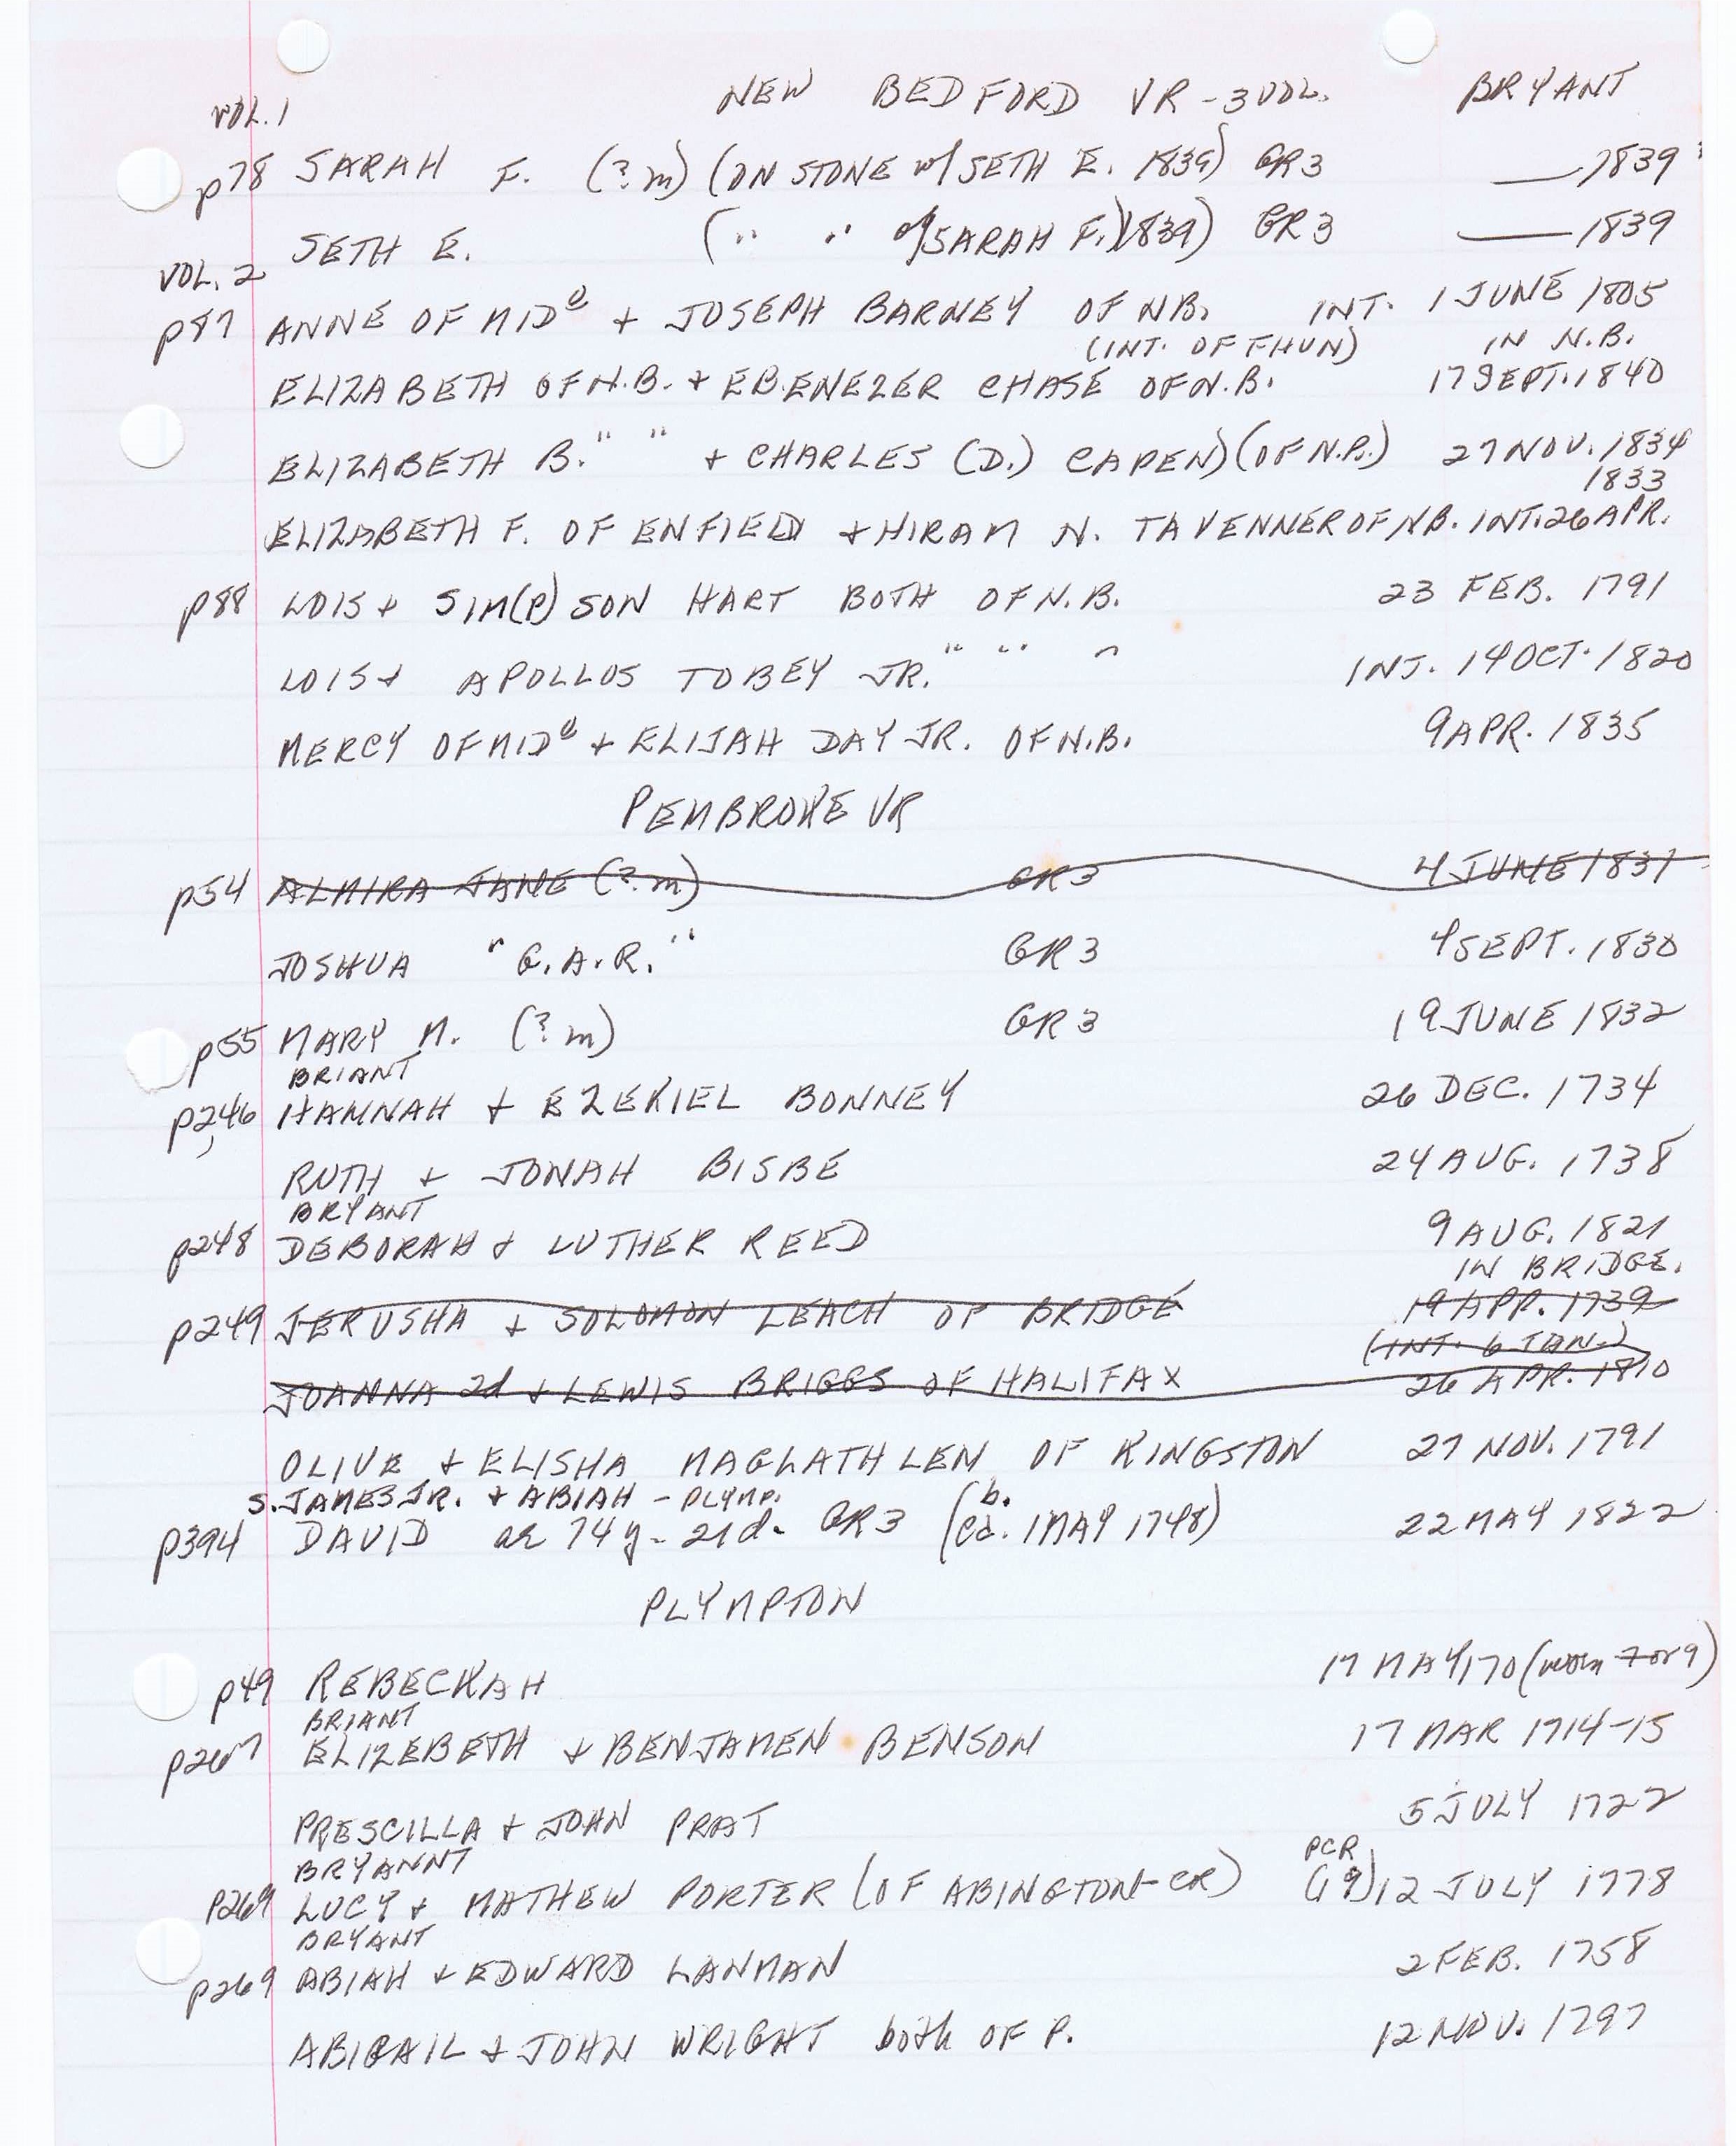 NEW BEDFORD VR - 3 VOL. BRYANT
VOL. 1
p78 SARAH F. (? m) (ON STONE w/ SETH E. 1839) GR3 — 1839
SETH E. (" " w/ SARAH F.) 1839) GR3 — 1839
VOL. 2
p87 ANNE OF MIDᵒ + JOSEPH BARNEY OF N.B. INT. 1 JUNE 1805
(INT. OF FHVN) IN N.B.
ELIZABETH OF N.B. + EBENEZER CHASE OF N.B. 17 SEPT. 1840
ELIZABETH B. " " + CHARLES (D.) CAPEN) (OF N.B.) 27 NOV. 1834
1833
ELIZABETH F. OF ENFIELD + HIRAM N. TAVENNER OF N.B. INT. 26 APR.
p88 LOIS + SIM(P)SON HART BOTH OF N.B. 23 FEB. 1791
LOIS + APOLLOS TOBEY JR. " " " INT. 14 OCT. 1820
MERCY OF MIDᵒ + ELIJAH DAY JR. OF N.B. 9 APR. 1835
PEMBROKE VR
p54 ALMIRA JANE (? m) GR3 4 JUNE 1831
JOSHUA "G.A.R." GR3 4 SEPT. 1830
p55 MARY M. (? m) GR3 19 JUNE 1832
BRIANT
p246 HANNAH + EZEKIEL BONNEY 26 DEC. 1734
RUTH + JONAH BISBE 24 AUG. 1738
BRYANT
p248 DEBORAH + LUTHER REED 9 AUG. 1821
IN BRIDGE.
p249 JERUSHA + SOLOMON LEACH OF BRIDGE 19 APR. 1739
(INT. 6 JAN.)
JOANNA 2d + LEWIS BRIGGS OF HALIFAX 26 APR. 1810
OLIVE + ELISHA MAGLATHLEN OF KINGSTON 27 NOV. 1791
S. JAMES JR. + ABIAH - PLYMP. b.
p394 DAVID ae 74 y - 21 d. GR3 (ca. 1 MAY 1748) 22 MAY 1822
PLYMPTON
p49 REBECKAH 17 MAY 170 (worn 7 or 9)
BRIANT
p267 ELIZEBETH + BENJAMEN BENSON 17 MAR 1714-15
PRESCILLA + JOHN PRAT 5 JULY 1722
BRYANNT PCR
p269 LUCY + MATHEW PORTER (OF ABINGTON - CR) (19) 12 JULY 1778
BRYANT
p269 ABIAH + EDWARD LANMAN 2 FEB. 1758
ABIGAIL + JOHN WRIGHT both OF P. 12 NOV. 1797